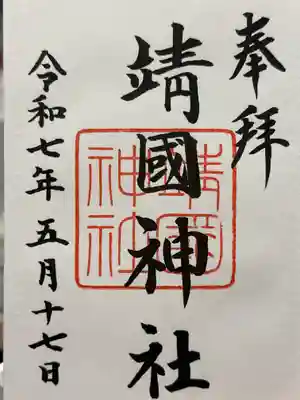 奉拝
靖國神社
靖國
神社
令和七年五月十七日